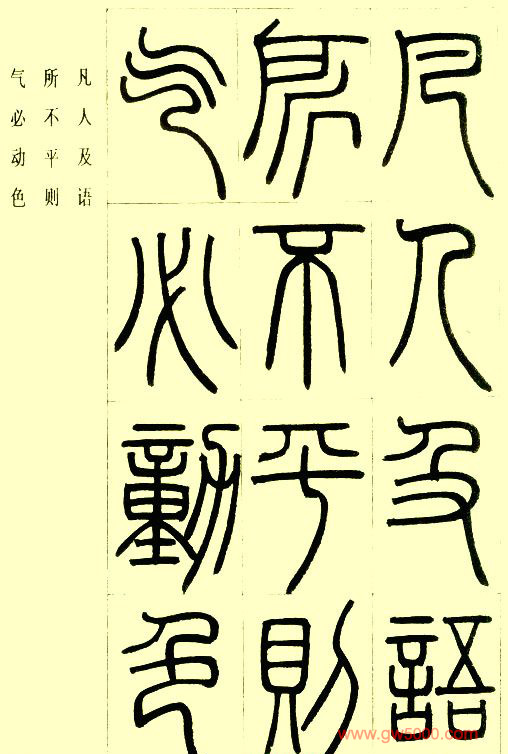 凡人及語
所不平則
气必動色
凡人及语
所不平则
气必动色
www.gw5000.com